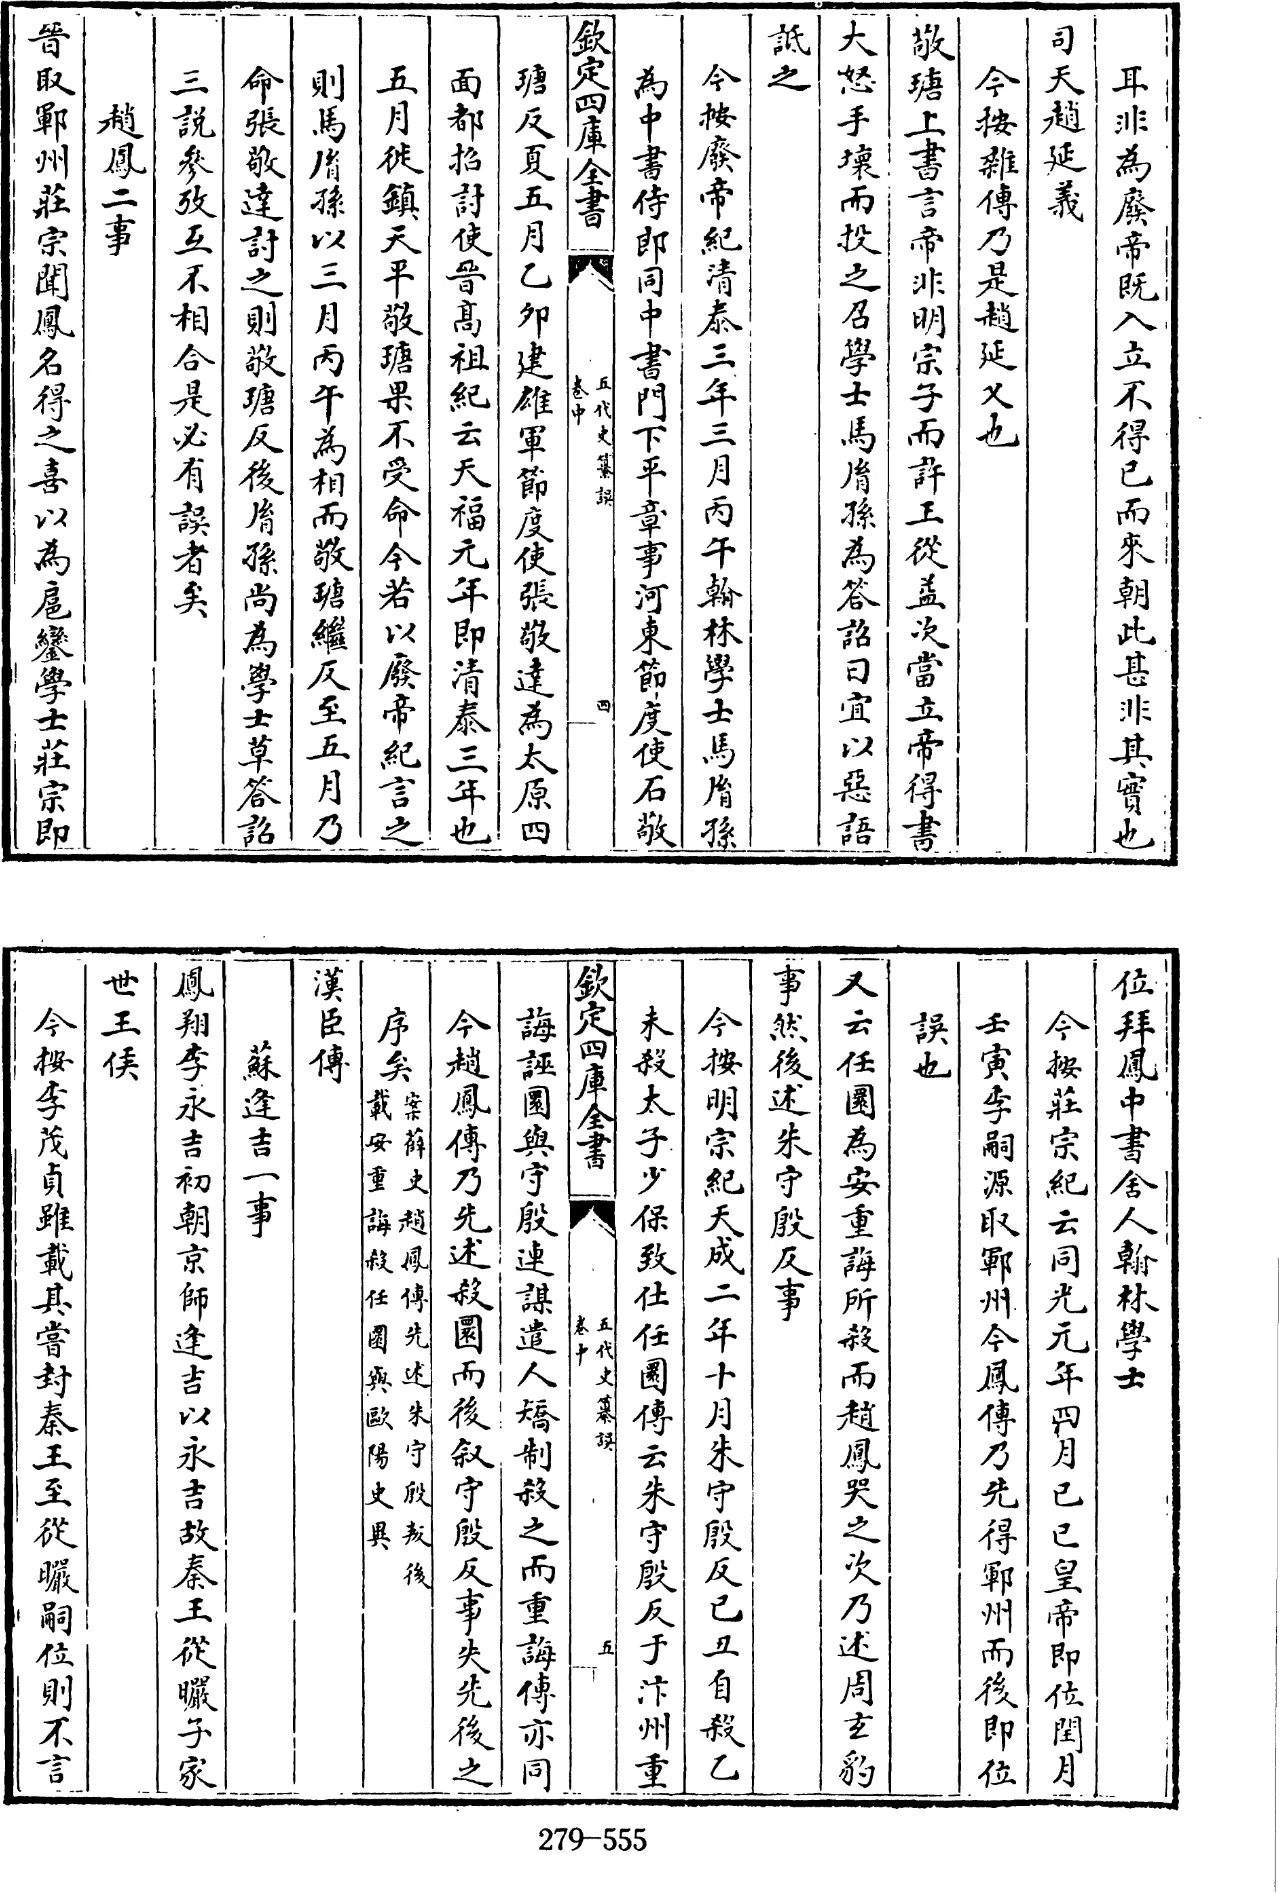 耳非為廢帝既入立不得已而來朝此甚非其實也
司天趙延義
今按雜傳乃是趙延乂也
敬瑭上書言帝非明宗子而許王從益次當立帝得書
大怒手壞而投之召學士馬𦙍孫為答詔曰宜以惡語
詆之
今按廢帝紀清泰三年三月丙午翰林學士馬𦙍孫
為中書侍郎同中書門下平章事河東節度使石敬
欽定四庫全書
五代史纂誤
卷中
四
瑭反夏五月乙卯建雄軍節度使張敬達為太原四
面都招討使晉髙祖紀云天福元年即清泰三年也
五月徙鎮天平敬瑭果不受命今若以廢帝紀言之
則馬𦙍孫以三月丙午為相而敬瑭繼反至五月乃
命張敬達討之則敬瑭反後𦙍孫尚為學士草答詔
三説參攷互不相合是必有誤者矣
趙鳳二事
晉取鄆州莊宗聞鳳名得之喜以為扈鑾學士莊宗即
位拜鳳中書舍人翰林學士
今按莊宗紀云同光元年四月己巳皇帝即位閏月
壬寅李嗣源取鄆州今鳳傳乃先得鄆州而後即位
誤也
又云任圜為安重誨所殺而趙鳳哭之次乃述周玄豹
事然後述朱守殷反事
今按明宗紀天成二年十月朱守殷反己丑自殺乙
未殺太子少保致仕任圜傳云朱守殷反于汴州重
欽定四庫全書
五代史纂誤
卷中
五
誨誣圜與守殷連謀遣人矯制殺之而重誨傳亦同
今趙鳳傳乃先述殺圜而後叙守殷反事失先後之
序矣案薛史趙鳳傳先述朱守殷叛後
載安重誨殺任圜與歐陽史異
漢臣傳
蘇逢吉一事
鳳翔李永吉初朝京師逢吉以永吉故秦王從曮子家
世王侯
今按李茂貞雖載其嘗封秦王至從曮嗣位則不言
279-555